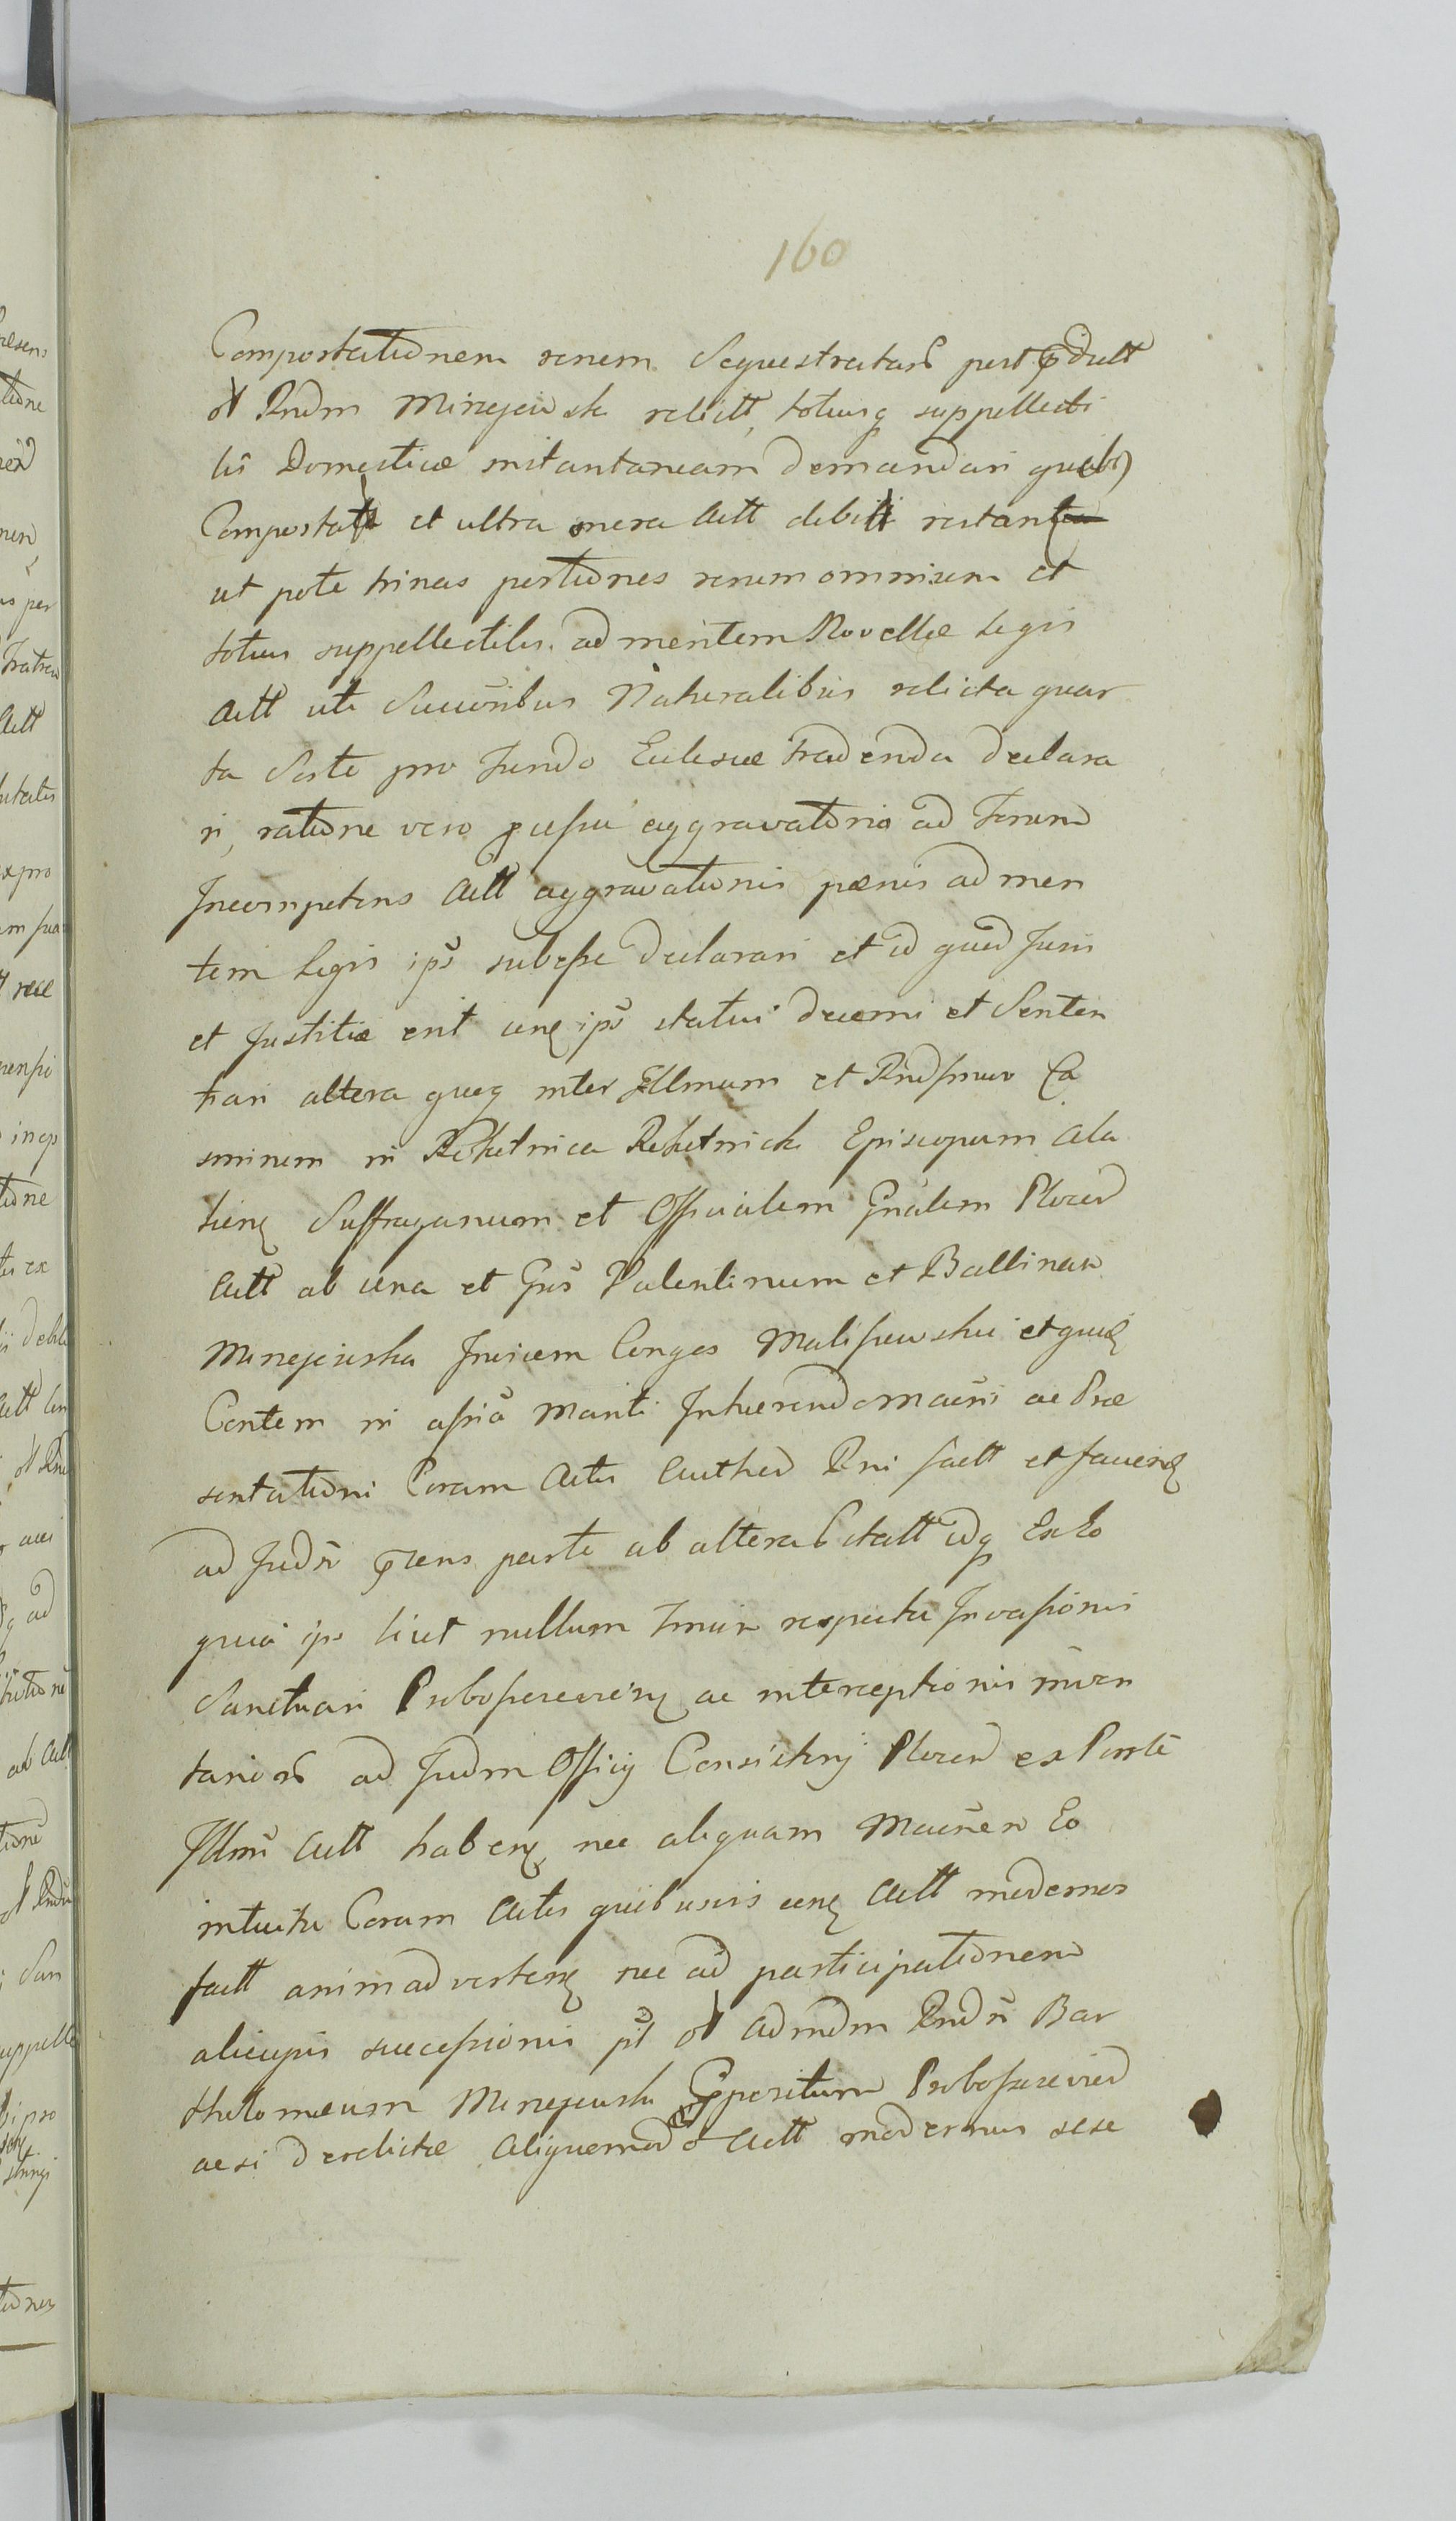 160
Compostationem rerum Sequestratarũ post p̃dctt
ol Rndm Minejewski relictt, totiusq suppellecti
lis Domesticæ instantaneam demandari quibꝫ
Compostatt et ultra onera Actt debitt restan
ut pote trinas portiones rerum omnium et
totius suppellectilis ad mentem Novellæ Legis
Actt uti Successoribus Naturalibus relicta quar
ta Sorte pro Fundo Ecclesiæ tradenda declara
ri, ratione vero aggravatorio ad Forum
Incompetens Actt aggravationis pænis ad men
tem Legis ips̃ subesse declarari et id quod Juris
et Justitiæ erit ips̃ statui decerni et Senten
tiari altera quoq inter Illmum et Rndssmum Ca
siminem in Rokitnica Rokitnicki Episcopum Ala
liens Suffraganeum et Officialem Gñalem Plocen
Actt ab una et Gñs Valentinum et Balbinam
Minejewska Invicem Conges Malissewskie et quæ
Contem in assña Mariti Inhærendo Macñi ac Præ
sentationi Coram Actis Authen Rni factt et faciens
ad Judñ p̃rens parte ab altera Citatt idq Ex Eo
quia ips licet nullum Tmnm respectu Invasionis
Sanctuari ac interceptionis inven
tariorũ ad Judm Officij Consistorij Plocen ex Parte
Illmi Actt habens, nec aliquam Macñen Eo
intuitu Coram Actis quibusvis Actt modernos
factt animadvertens nec ad participationem
alicujus successionis pt ol Admdm Rndñ Bar
tholomæum Minejewski Præpositum
ac si derelictæ Aliquomodo Actt modernus sese